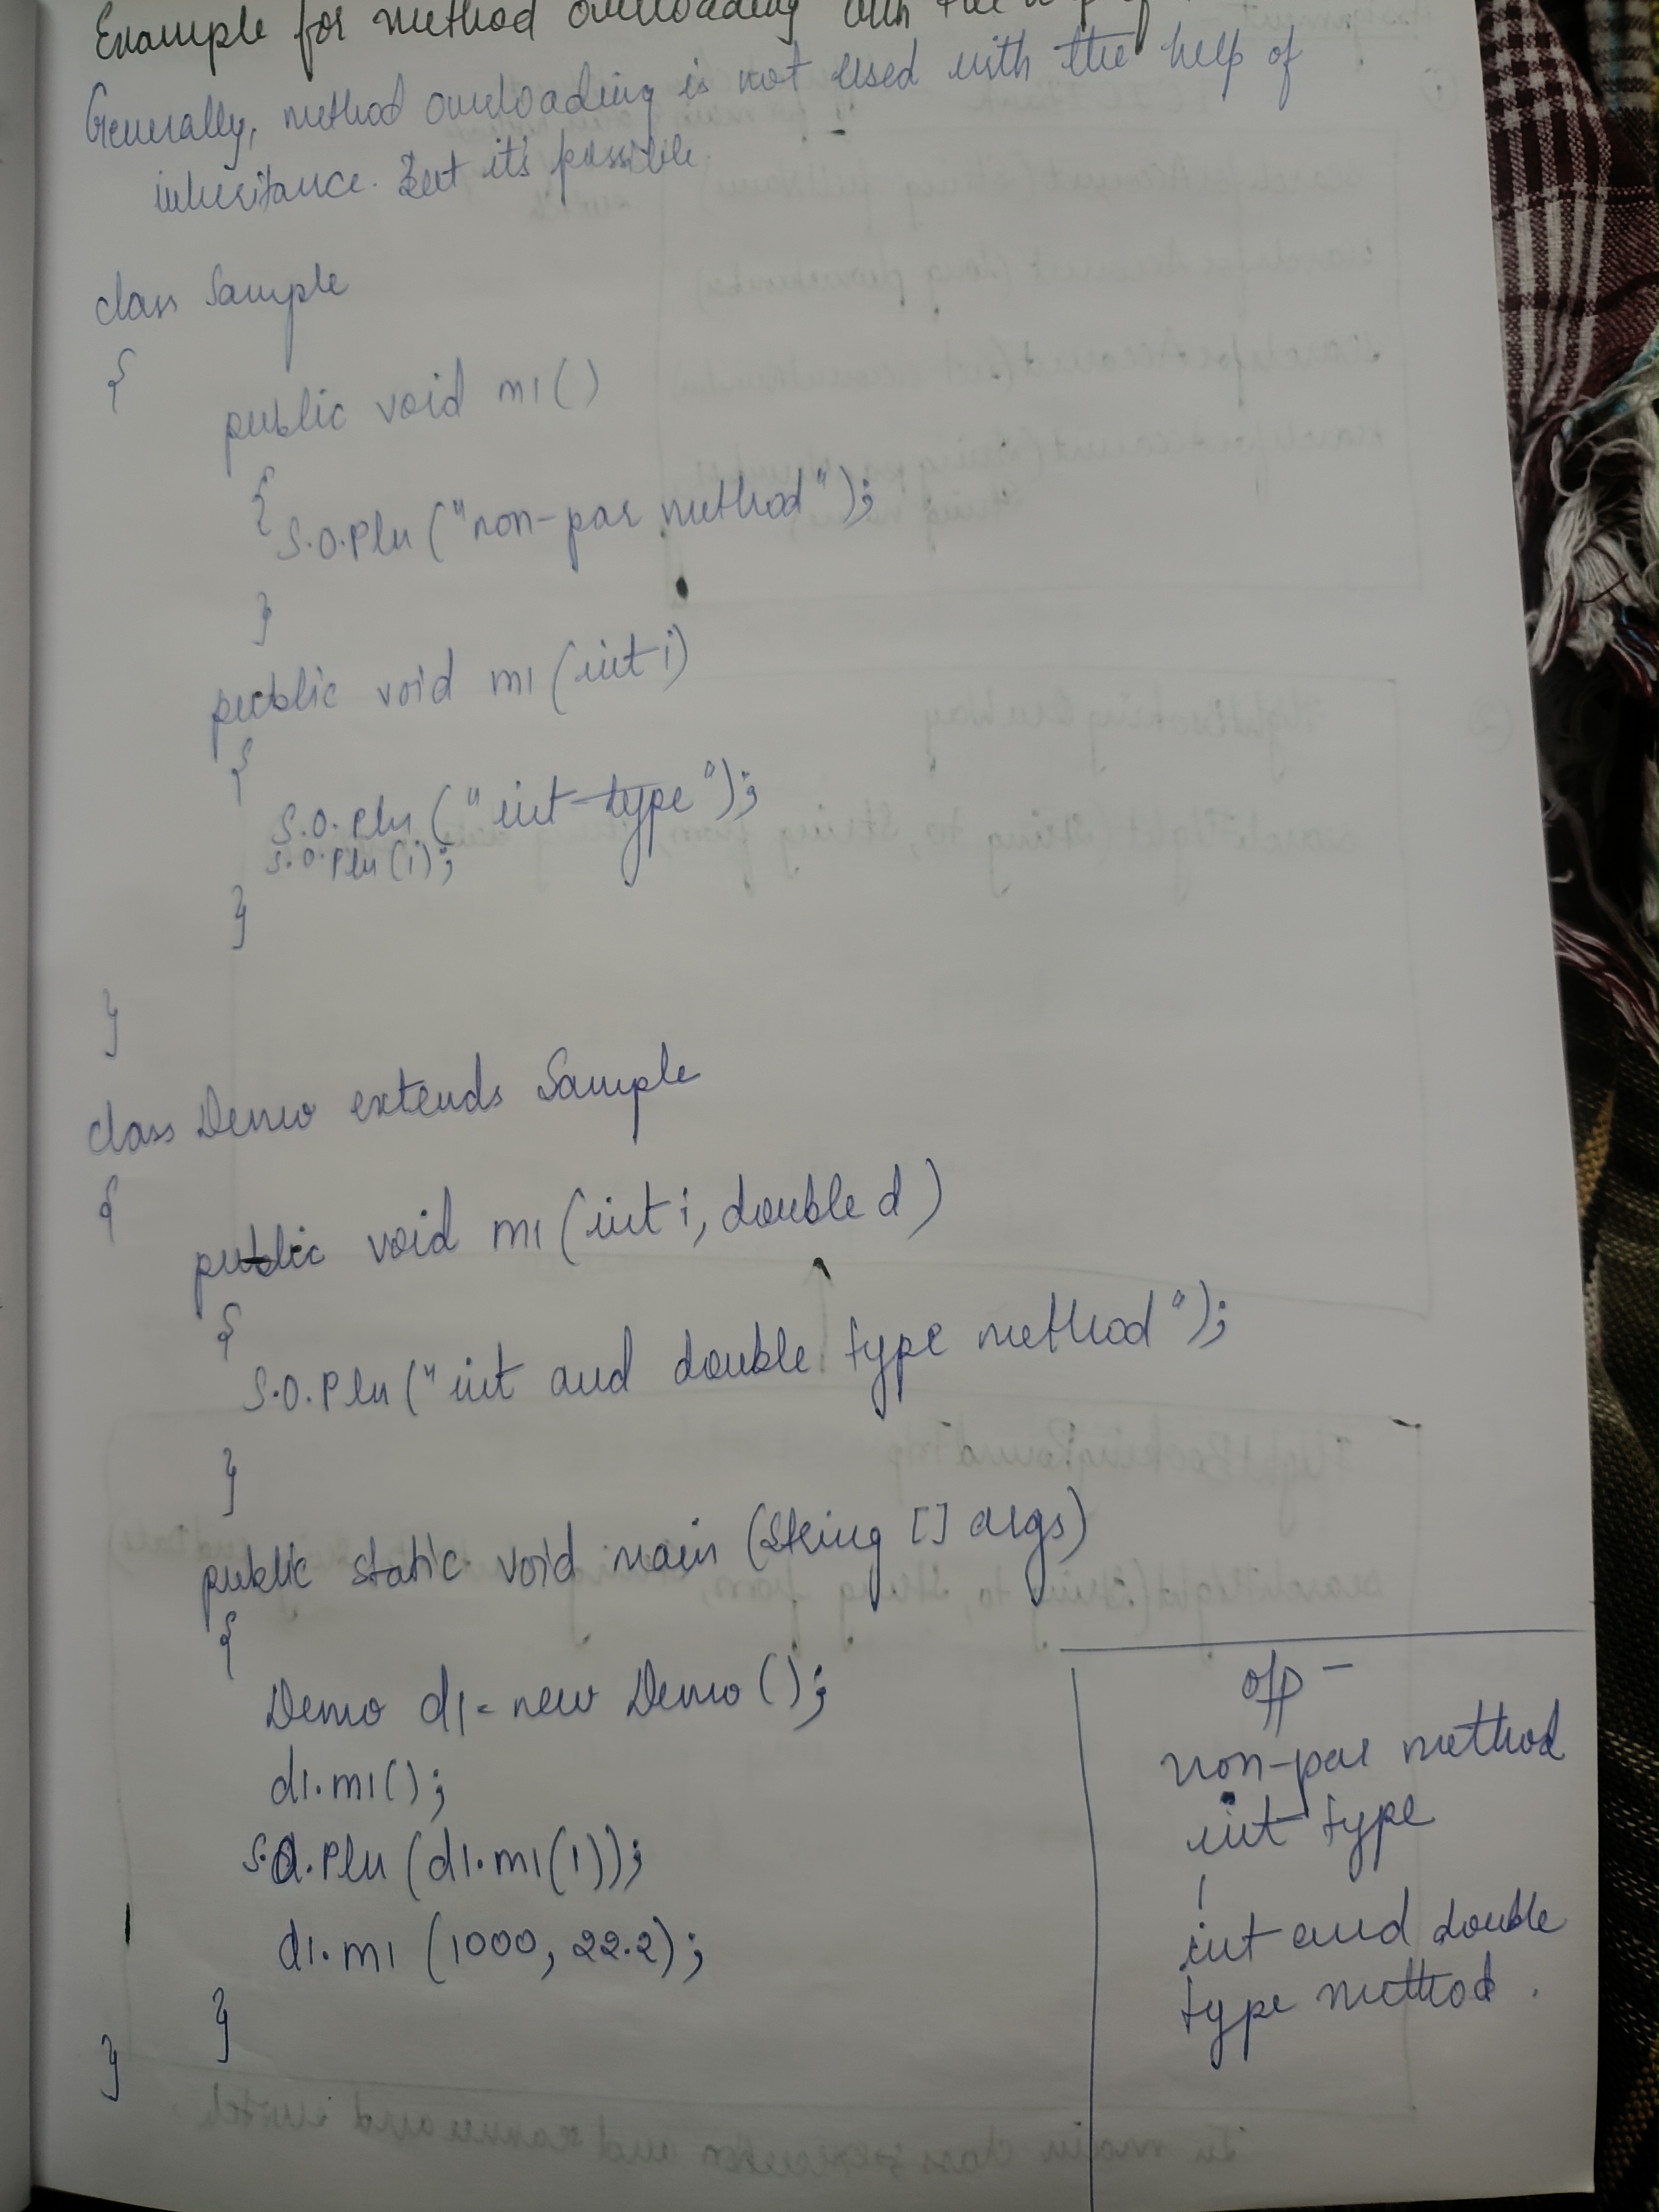 Example for method overloading with the
Generally, method overloading is not used with the help of
inheritance. But it's possible.
class Sample
{
public void m1()
{
S.O.Pln ("non-par method");
}
public void m1 (int i)
{
S.O.Pln ("int-type");
S.O.Pln (i);
}
}
class Demo extends Sample
{
public void m1 (int i, double d)
{
S.O.Pln ("int and double type method");
}
public static void main (String [] args)
{
Demo d1 = new Demo ();
d1.m1();
S.O.Pln (d1.m1(1));
d1.m1 (1000, 22.2);
}
}
o/p -
non-par method
int type
1
int and double
type method.